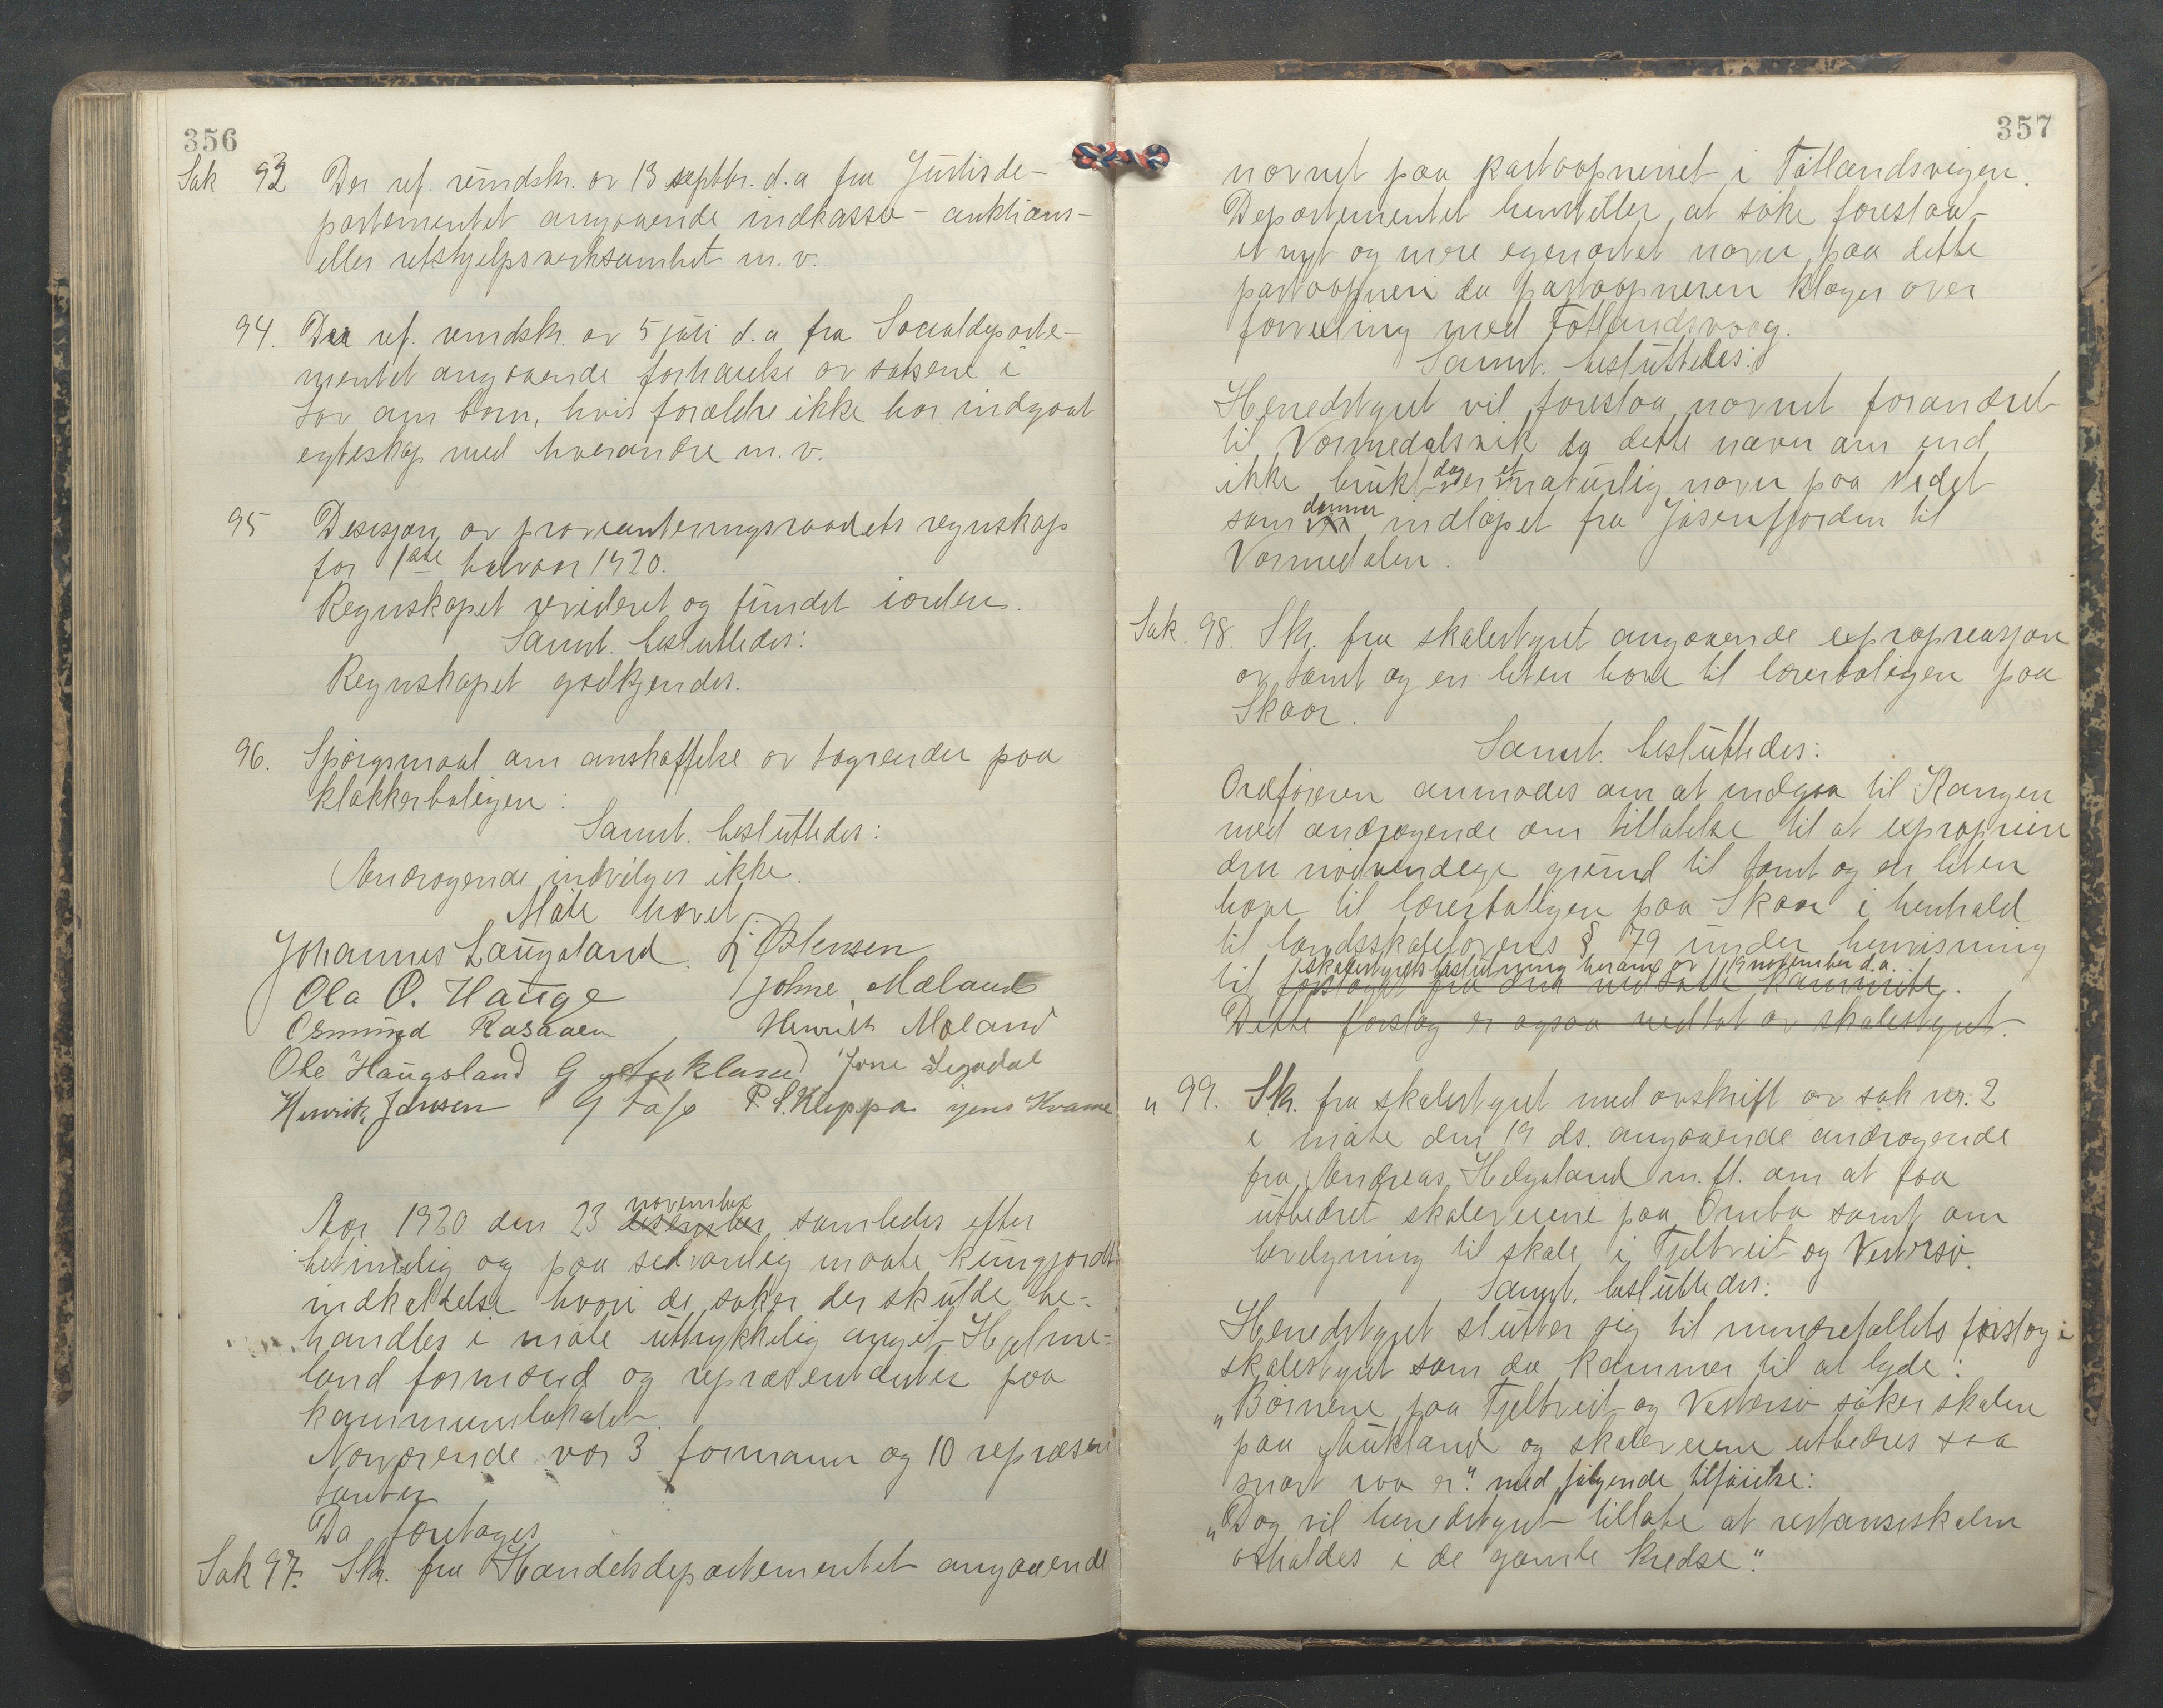 356
Sak 93 Der ref. rundskr. av 13 septbr. d.a fra Justisde-
partementet angaaende indkasso- auktions-
eller retshjelpsverksamhet m.v.
94. Der ref. rundskr. av 5 juli d.a fra Socialdeparte-
mentet angaaende forhaielse av satsene i
Lov om born, hvis forældre ikke har indgaat
egteskap med hverandre m.v.
95 Desisjon av provianteringsraadets regnskap
for 1ste halvaar 1920.
Regnskapet revideret og fundet iorden.
Samt. besluttedes:
Regnskapet godkjendes.
96. Spørgsmaal om anskaffelse av tagrender paa
klokkerboligen:
Samt. besluttedes:
Andragende indvilges ikke.
Møte hævet.
Johannes Laugaland. L. Østensen
Ola O. Hauge Johne Mæland
Osmund Rasaaen Henrich Mæland
Ole Haugsland G Aukland Jone Segadal
Henrik Jansen G Tafs P. S. Kleppa Jens Kvame
Aar 1920 den 23 desember november samledes efter
betimelig og paa sedvanlig maate kungjordt
indkaldelse hvori de saker der skulde be-
handles i møte uttrykkelig angit Hjelme-
land formænd og repræsentanter paa
kommunelokalet.
Nærværende var 3 formænn og 10 repræsen
tanter
Da foretages
Sak 97. Skr. fra Handelsdepartementet angaaende
357
navnet paa postaapneriet i Tøtlandsvigen.
Departementet henstiller at søke foreslaa-
et nyt og mere egenartet navn paa dette
postaapneri da postaapneren klager over
forveksling med Fotlandsvaag.
Samt. besluttedes:
Herredstyret vil foreslaa navnet forandret
til Vormedalsvik da dette navn om end
ikke brukt dog er et naturlig navn paa stedet
som danner indløpet fra Jøsenfjorden til
Vormedalen.
Sak. 98. Skr. fra skolestyret angaaende expropreasjon
av tomt og en liten have til lærerboligen paa
Skaar.
Samt. besluttedes:
Ordføreren anmodes om at indgaa til Kongen
med andragende om tillatelse til at expropriere
den nødvendige grund til tomt og en liten
have til lærerboligen paa Skaar i henhold
til landsskolelovens § 79 under henvisning
til skolestyrets beslutning herom av 19 november d.a.
forslaget fra den nedsatte kommite.
Dette forslag er ogsaa vedtat av skolestyret.
" 99. Skr. fra skolestyret med avskrift av sak nr. 2
i møte den 19 ds. angaaende andragende
fra Andreas Helgaland m.fl. om at faa
utbedret skoleveiene paa Ombo samt om
bevilgning til skole i Tjeltveit og Vestersø.
Samt. besluttedes:
Herredstyret slutter sig til mindretallets forslag i
skolestyret som da kommer til at lyde:
"Børnene paa Tjeltveit og Vestersø søker skolen
paa Aukland og skoleveiene utbedres saa
snart raa er." med følgende tilføielse:
"Dog vil herredstyret tillate at restanseskolen
avholdes i de gamle kredse."